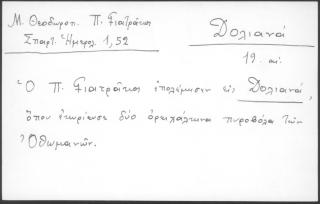 Μ. Θεοδωροπ. Π. Γιατράκος
Σπαρτ. Ἡμερολ. 1,52
Δολιανά
19. αἰ.
Ὁ Π. Γιατράκος ἐπολέμησεν εἰς Δολιανά,
ὅπου ἐκυρίευσε δύο ὀρειχάλκινα πυροβόλα τῶν
Ὀθωμανῶν.